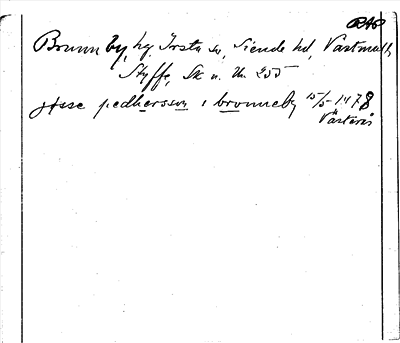 RAP
Brunnby, hg. Irsta sn, Siende hd, Västmanl
Styffe, Sk u. Un. 255
Jsse pedhersson i bronneby 15/5 1478
Västerås